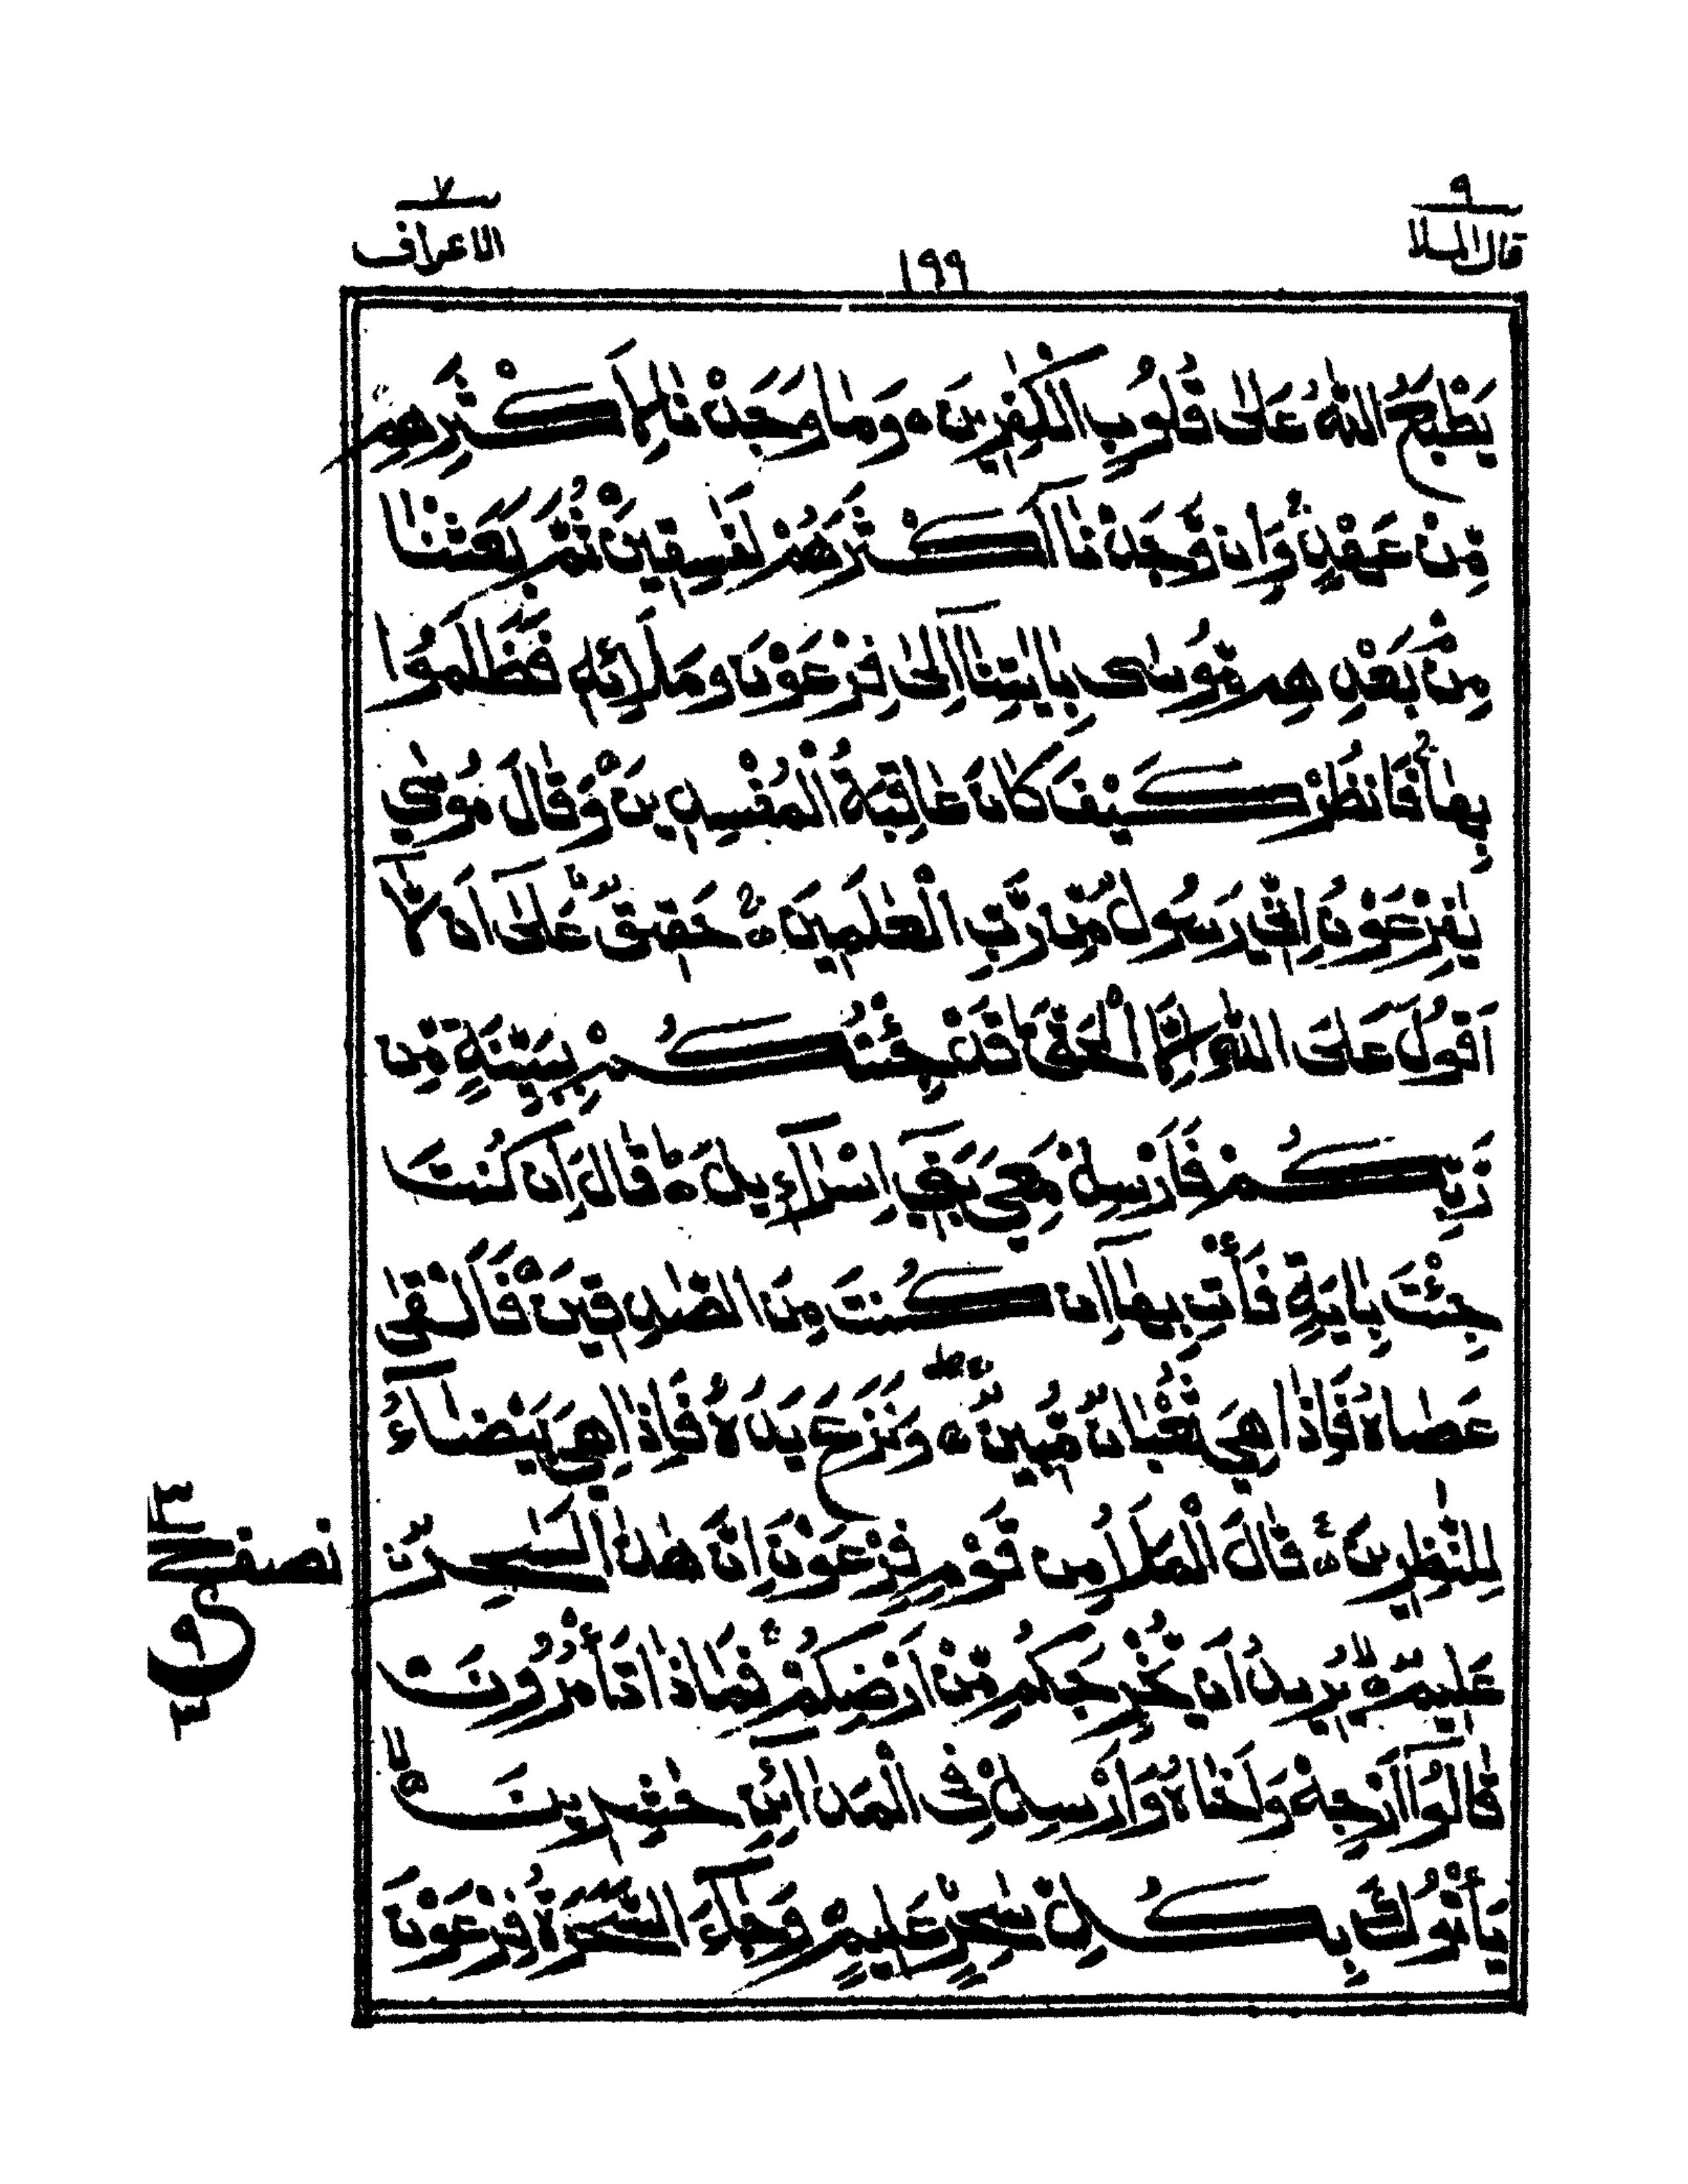 قال الملا ٩
١٩٩
الاعراف ٧
يَطْبَعُ اللّٰهُ عَلٰى قُلُوبِ الْكٰفِرِينَ ۝ وَمَا وَجَدْنَا لِاَكْثَرِهِمْ
مِّنْ عَهْدٍ وَاِنْ وَّجَدْنَا اَكْثَرَهُمْ لَفٰسِقِينَ ۝ ثُمَّ بَعَثْنَا
مِنْۢ بَعْدِهِمْ مُّوسٰى بِاٰيٰتِنَآ اِلٰى فِرْعَوْنَ وَمَلَا۟ئِهٖ فَظَلَمُوا
بِهَا فَانْظُرْ كَيْفَ كَانَ عَاقِبَةُ الْمُفْسِدِينَ ۝ وَقَالَ مُوسٰى
يٰفِرْعَوْنُ اِنِّي رَسُولٌ مِّنْ رَّبِّ الْعٰلَمِينَ ۝ حَقِيقٌ عَلٰٓى اَنْ لَّآ
اَقُولَ عَلَى اللّٰهِ اِلَّا الْحَقَّ قَدْ جِئْتُكُمْ بِبَيِّنَةٍ مِّنْ
رَّبِّكُمْ فَاَرْسِلْ مَعِيَ بَنِيٓ اِسْرَآءِيلَ ۝ قَالَ اِنْ كُنْتَ
جِئْتَ بِاٰيَةٍ فَأْتِ بِهَآ اِنْ كُنْتَ مِنَ الصّٰدِقِينَ ۝ فَاَلْقٰى
عَصَاهُ فَاِذَا هِيَ ثُعْبَانٌ مُّبِينٌ ۝ وَّنَزَعَ يَدَهُ فَاِذَا هِيَ بَيْضَآءُ
لِلنّٰظِرِينَ ۝ قَالَ الْمَلَاُ مِنْ قَوْمِ فِرْعَوْنَ اِنَّ هٰذَا لَسٰحِرٌ
عَلِيمٌ ۝ يُّرِيدُ اَنْ يُّخْرِجَكُمْ مِّنْ اَرْضِكُمْ فَمَاذَا تَأْمُرُونَ
قَالُوٓا اَرْجِهْ وَاَخَاهُ وَاَرْسِلْ فِى الْمَدَآئِنِ حٰشِرِينَ ۝
يَأْتُوكَ بِكُلِّ سٰحِرٍ عَلِيمٍ ۝ وَجَآءَ السَّحَرَةُ فِرْعَوْنَ
٣
نصف
ع
٩
٣